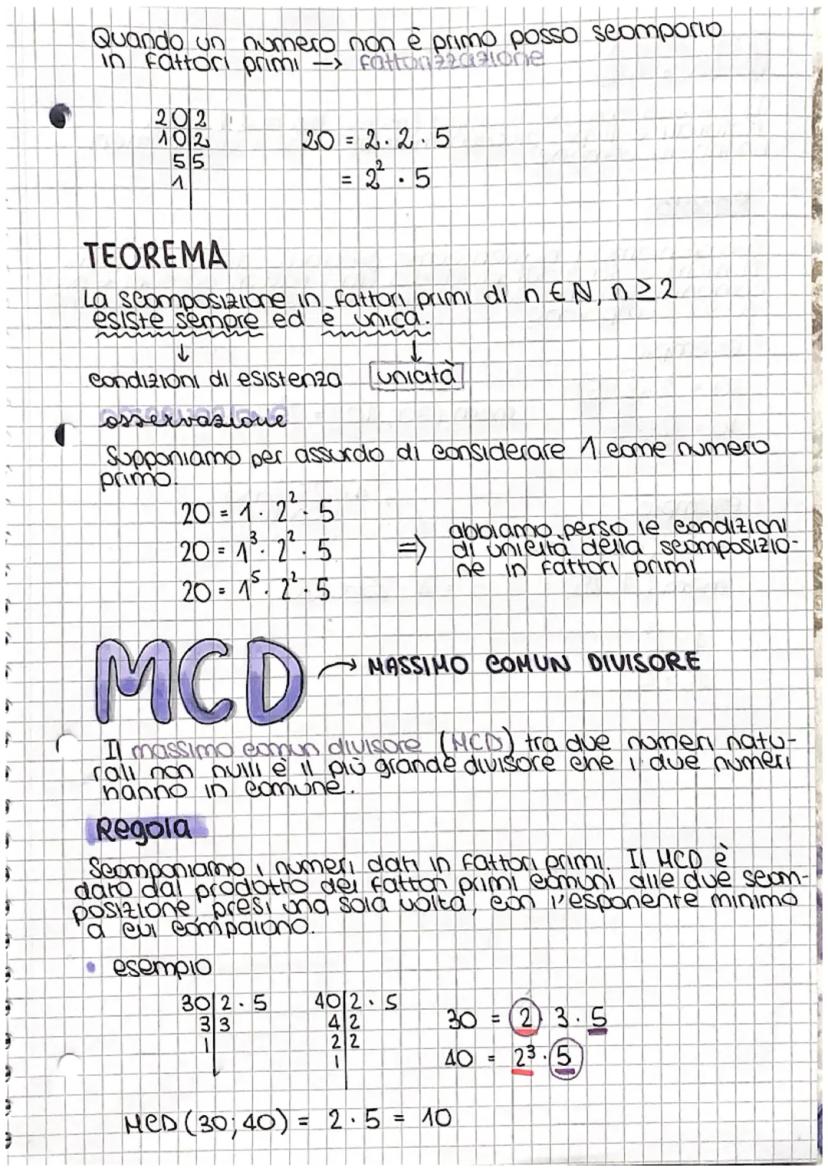 Quando un numero non è primo posso scomporlo
in fattori primi → fattorizzazione
20|2
10|2
5|5
1|
20 = 2·2·5
= 2²·5
TEOREMA
La scomposizione in fattori primi di n ∈ N, n ≥ 2
esiste sempre ed è unica.
↓ ↓
condizioni di esistenza unicità
osservazione
Supponiamo per assurdo di considerare 1 come numero
primo.
20 = 1·2²·5
20 = 1³·2²·5
20 = 1⁵·2²·5
⇒ abbiamo perso le condizioni
di unicità della scomposizio-
ne in fattori primi
MCD → MASSIMO COMUN DIVISORE
Il massimo comun divisore (MCD) tra due numeri natu-
rali non nulli è il più grande divisore che i due numeri
hanno in comune.
Regola
Scomponiamo i numeri dati in fattori primi. Il MCD è
dato dal prodotto dei fattori primi comuni alle due scom-
posizione, presi una sola volta, con l'esponente minimo
a cui compaiono.
• esempio
30|2·5
3|3
1|
40|2·5
4|2
2|2
1|
30 = 2·3·5
40 = 2³·5
MCD (30;40) = 2·5 = 10